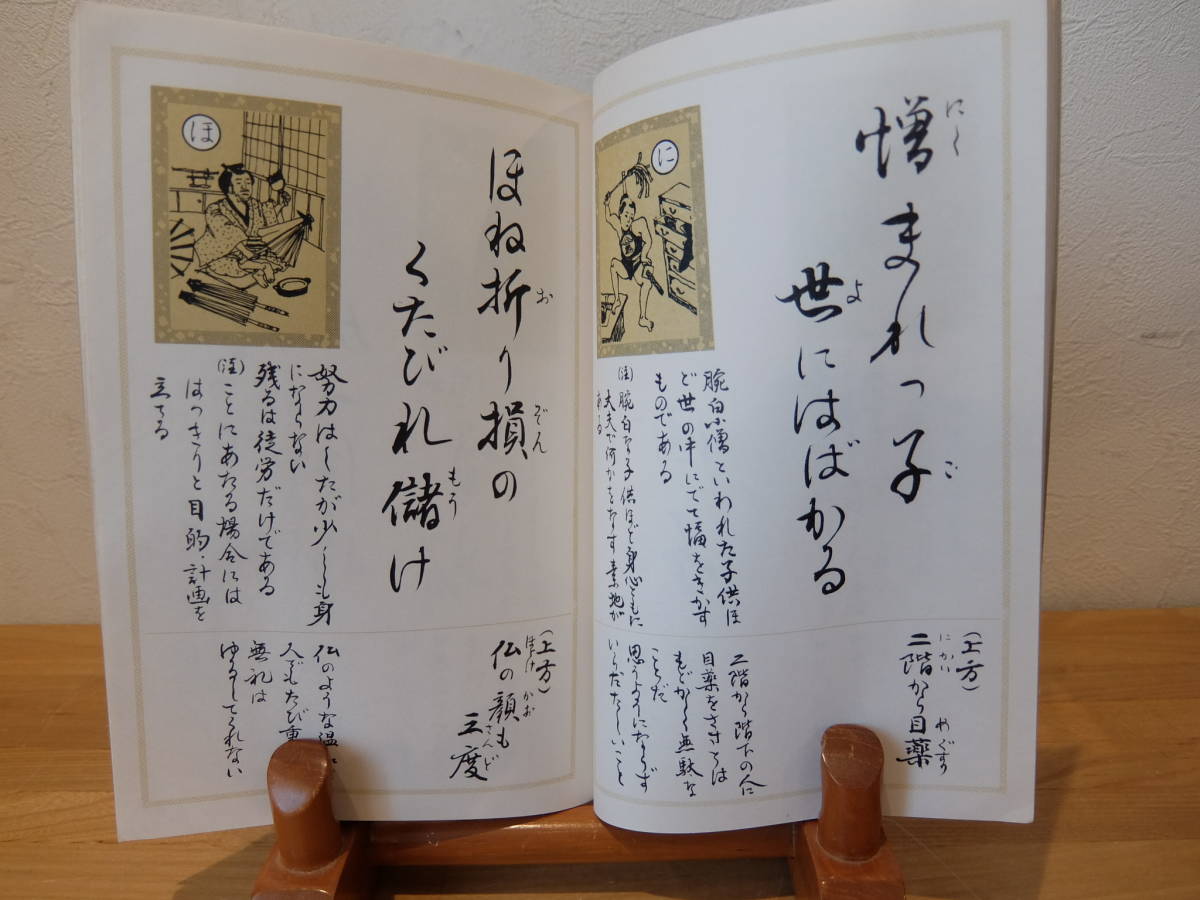 憎まれっ子
にく
ご
世にはばかる
よ
に
腕白小僧といわれた子供ほ
ど世の中にでて幅をきかす
ものである
(注)腕白な子供ほど身心ともに
丈夫で何かをなす素地が
ある
(上方)
二階から目薬
にかい
めぐすり
二階から階下の人に
目薬をささうとは
もどかしく無駄な
ことだ
思うようにならず
いらだたしいこと
ほね折り損の
お
ぞん
くたびれ儲け
もう
ほ
努力はしたが少しも身
にならない
残るは徒労だけである
(注)ことにあたる場合には
はっきりと目的・計画を
立てる
(上方)
仏の顔も
ほとけ
かお
三度
さんど
仏のような温
人でもたび重
無礼は
ゆるしてくれない